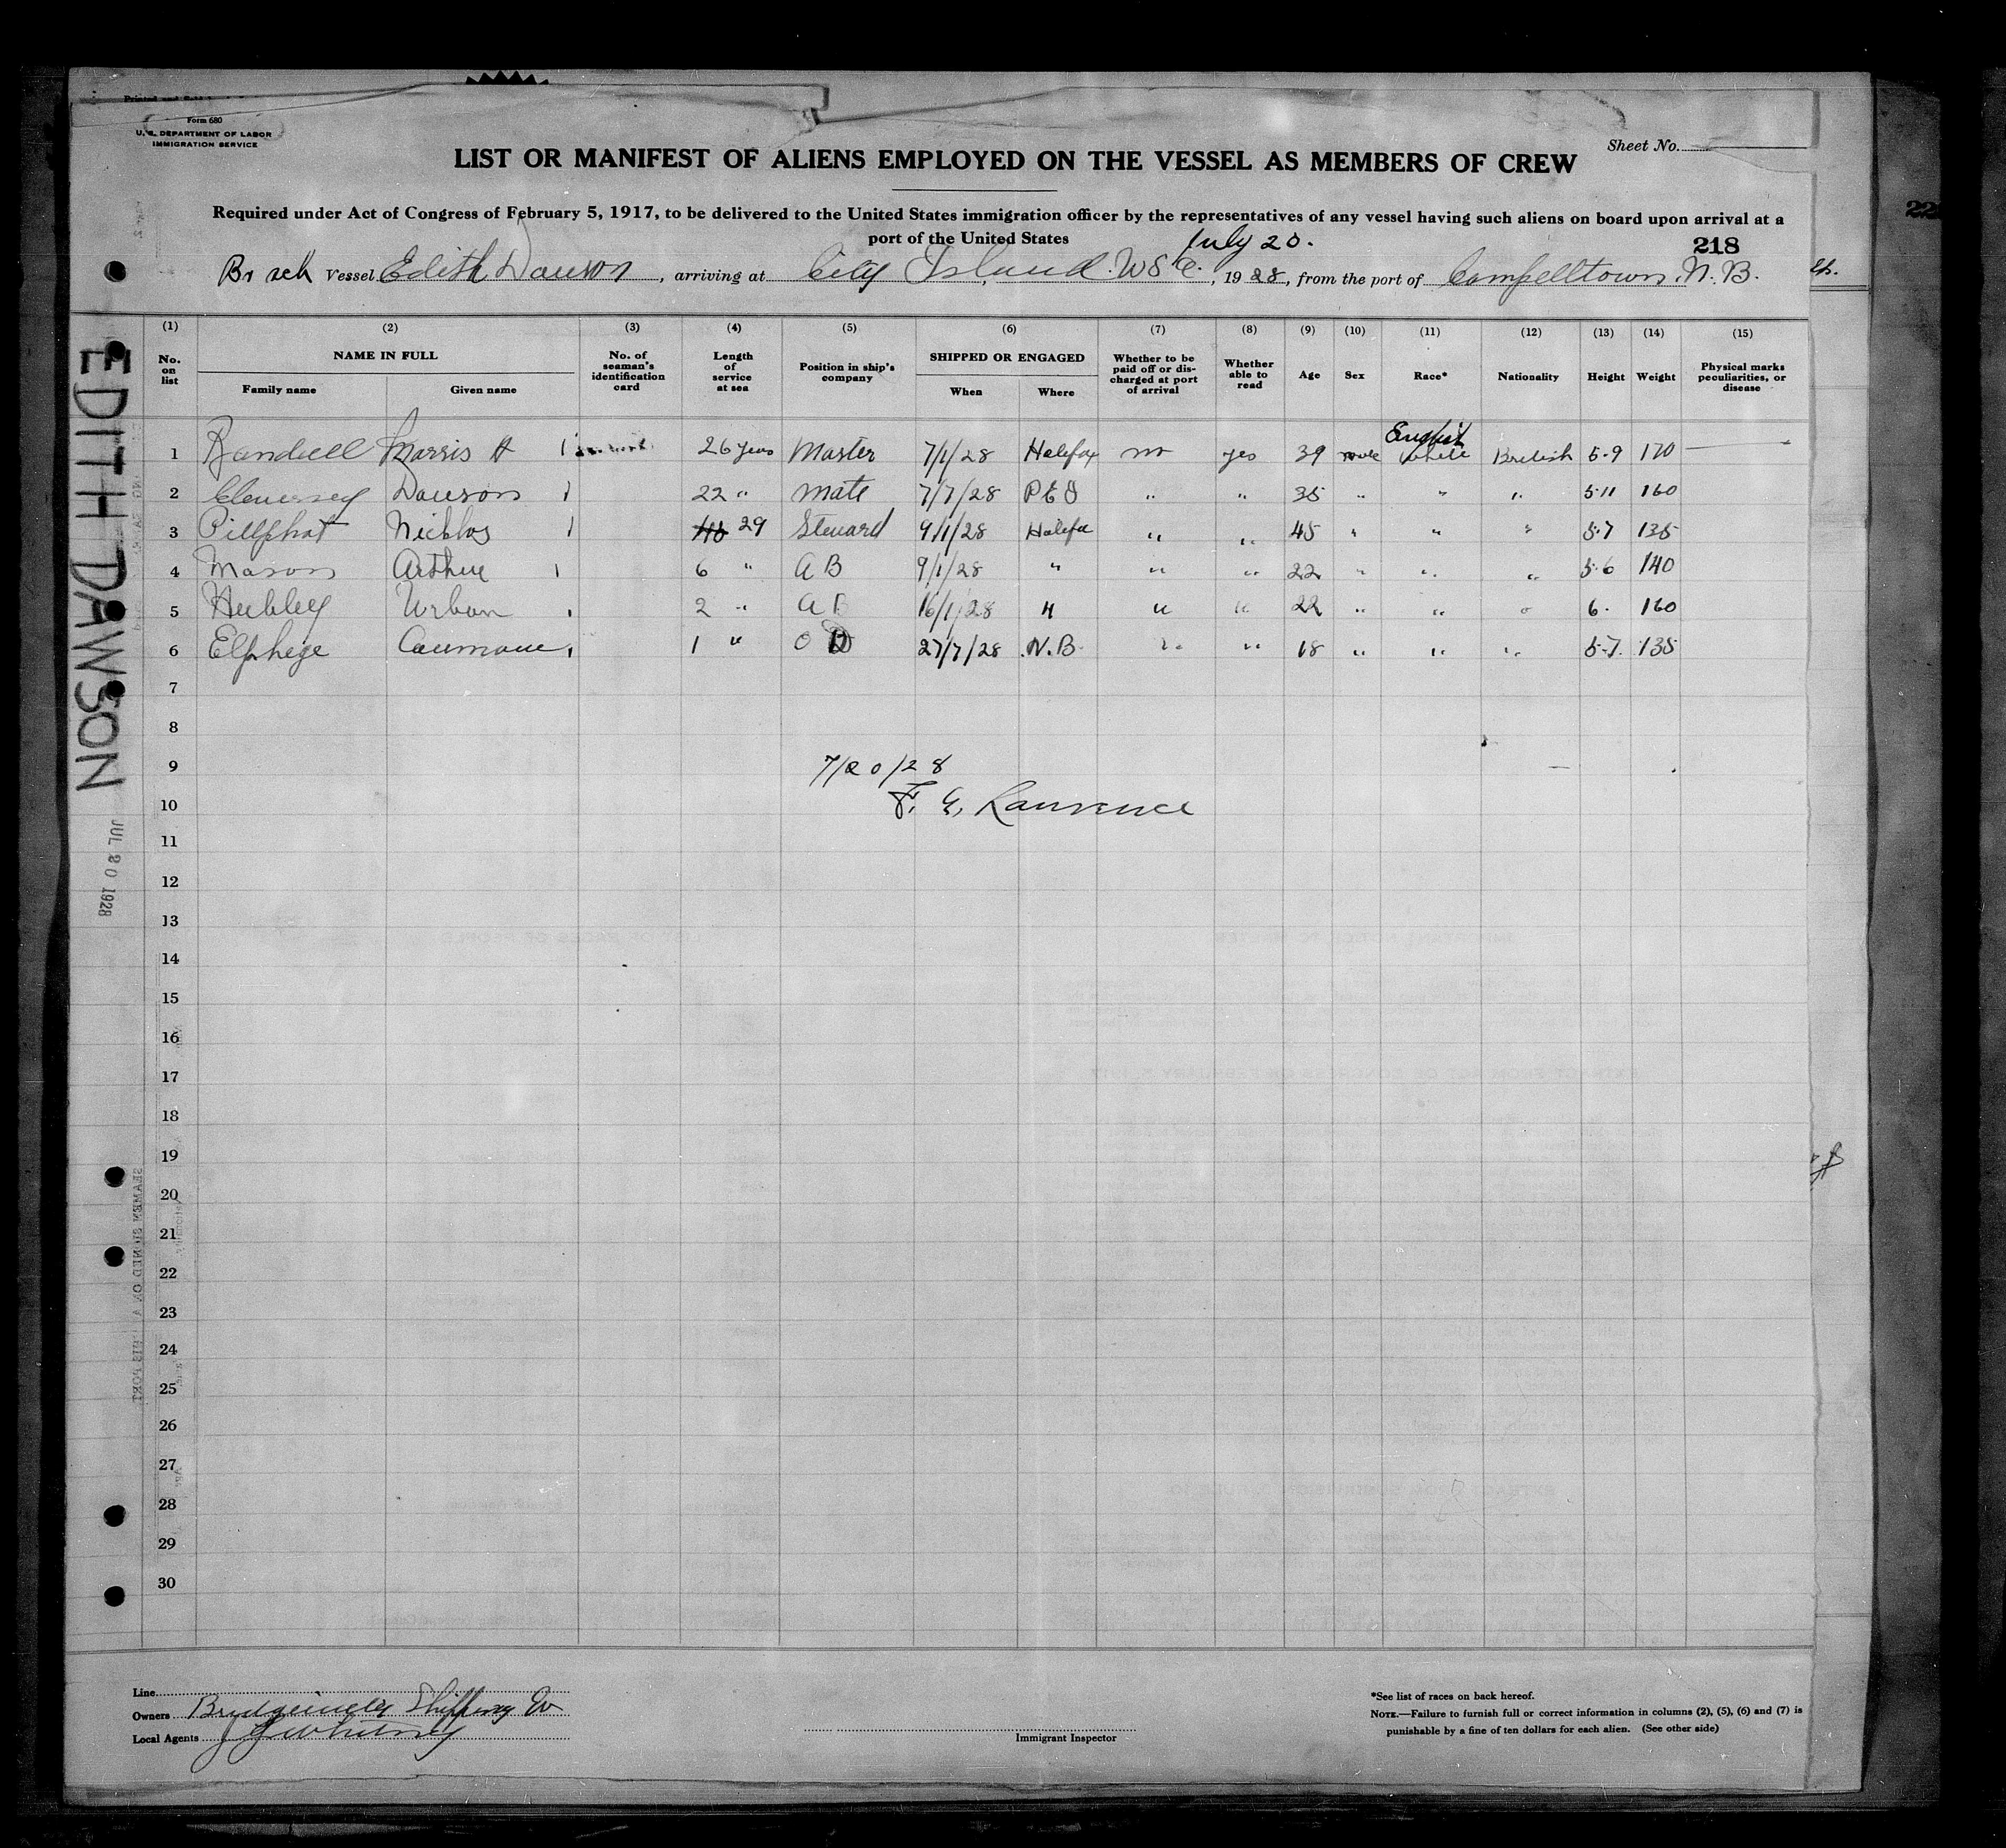 Form 680
U. S. DEPARTMENT OF LABOR
IMMIGRATION SERVICE
Sheet No.
LIST OR MANIFEST OF ALIENS EMPLOYED ON THE VESSEL AS MEMBERS OF CREW
Required under Act of Congress of February 5, 1917, to be delivered to the United States immigration officer by the representatives of any vessel having such aliens on board upon arrival at a
port of the United States
July 20.
218
Br sch Vessel Edith Dawson, arriving at City Island, 1928, from the port of Campelltown, N. B.
(1) (2) (3) (4) (5) (6) (7) (8) (9) (10) (11) (12) (13) (14) (15)
No. on list
NAME IN FULL
Family name Given name
No. of seaman's identification card
Length of service at sea
Position in ship's company
SHIPPED OR ENGAGED
When Where
Whether to be paid off or discharged at port of arrival
Whether able to read
Age
Sex
Race*
Nationality
Height
Weight
Physical marks peculiarities, or disease
English
1 Morris A 26 years Master 7/1/28 Halifax no yes 39 male White British 5-9 170 —
2 Dawson 22 " Mate 7/7/28 P E I " " 35 " " " 5 11 160
3 29 Steward 9/1/28 Halifa " " 45 " " " 5.7 135
4 Mason Arthur 6 " A B 9/1/28 " " " 22 " " " 5.6 140
5 Hubley Urban 2 " A B 16/1/28 " " " 22 " " " 6. 160
6 Elphege 1 " O 27/7/28 N.B. " " 18 " " " 5-7. 135
7
8
9
7/20/28
10
F. G. Lawrence
11
12
13
14
15
16
17
18
19
20
21
22
23
24
25
26
27
28
29
30
Line
Owners Shipping Co
Local Agents Whitney
Immigrant Inspector
*See list of races on back hereof.
NOTE.—Failure to furnish full or correct information in columns (2), (5), (6) and (7) is
punishable by a fine of ten dollars for each alien. (See other side)
EDITH DAWSON
JUL 20 1928